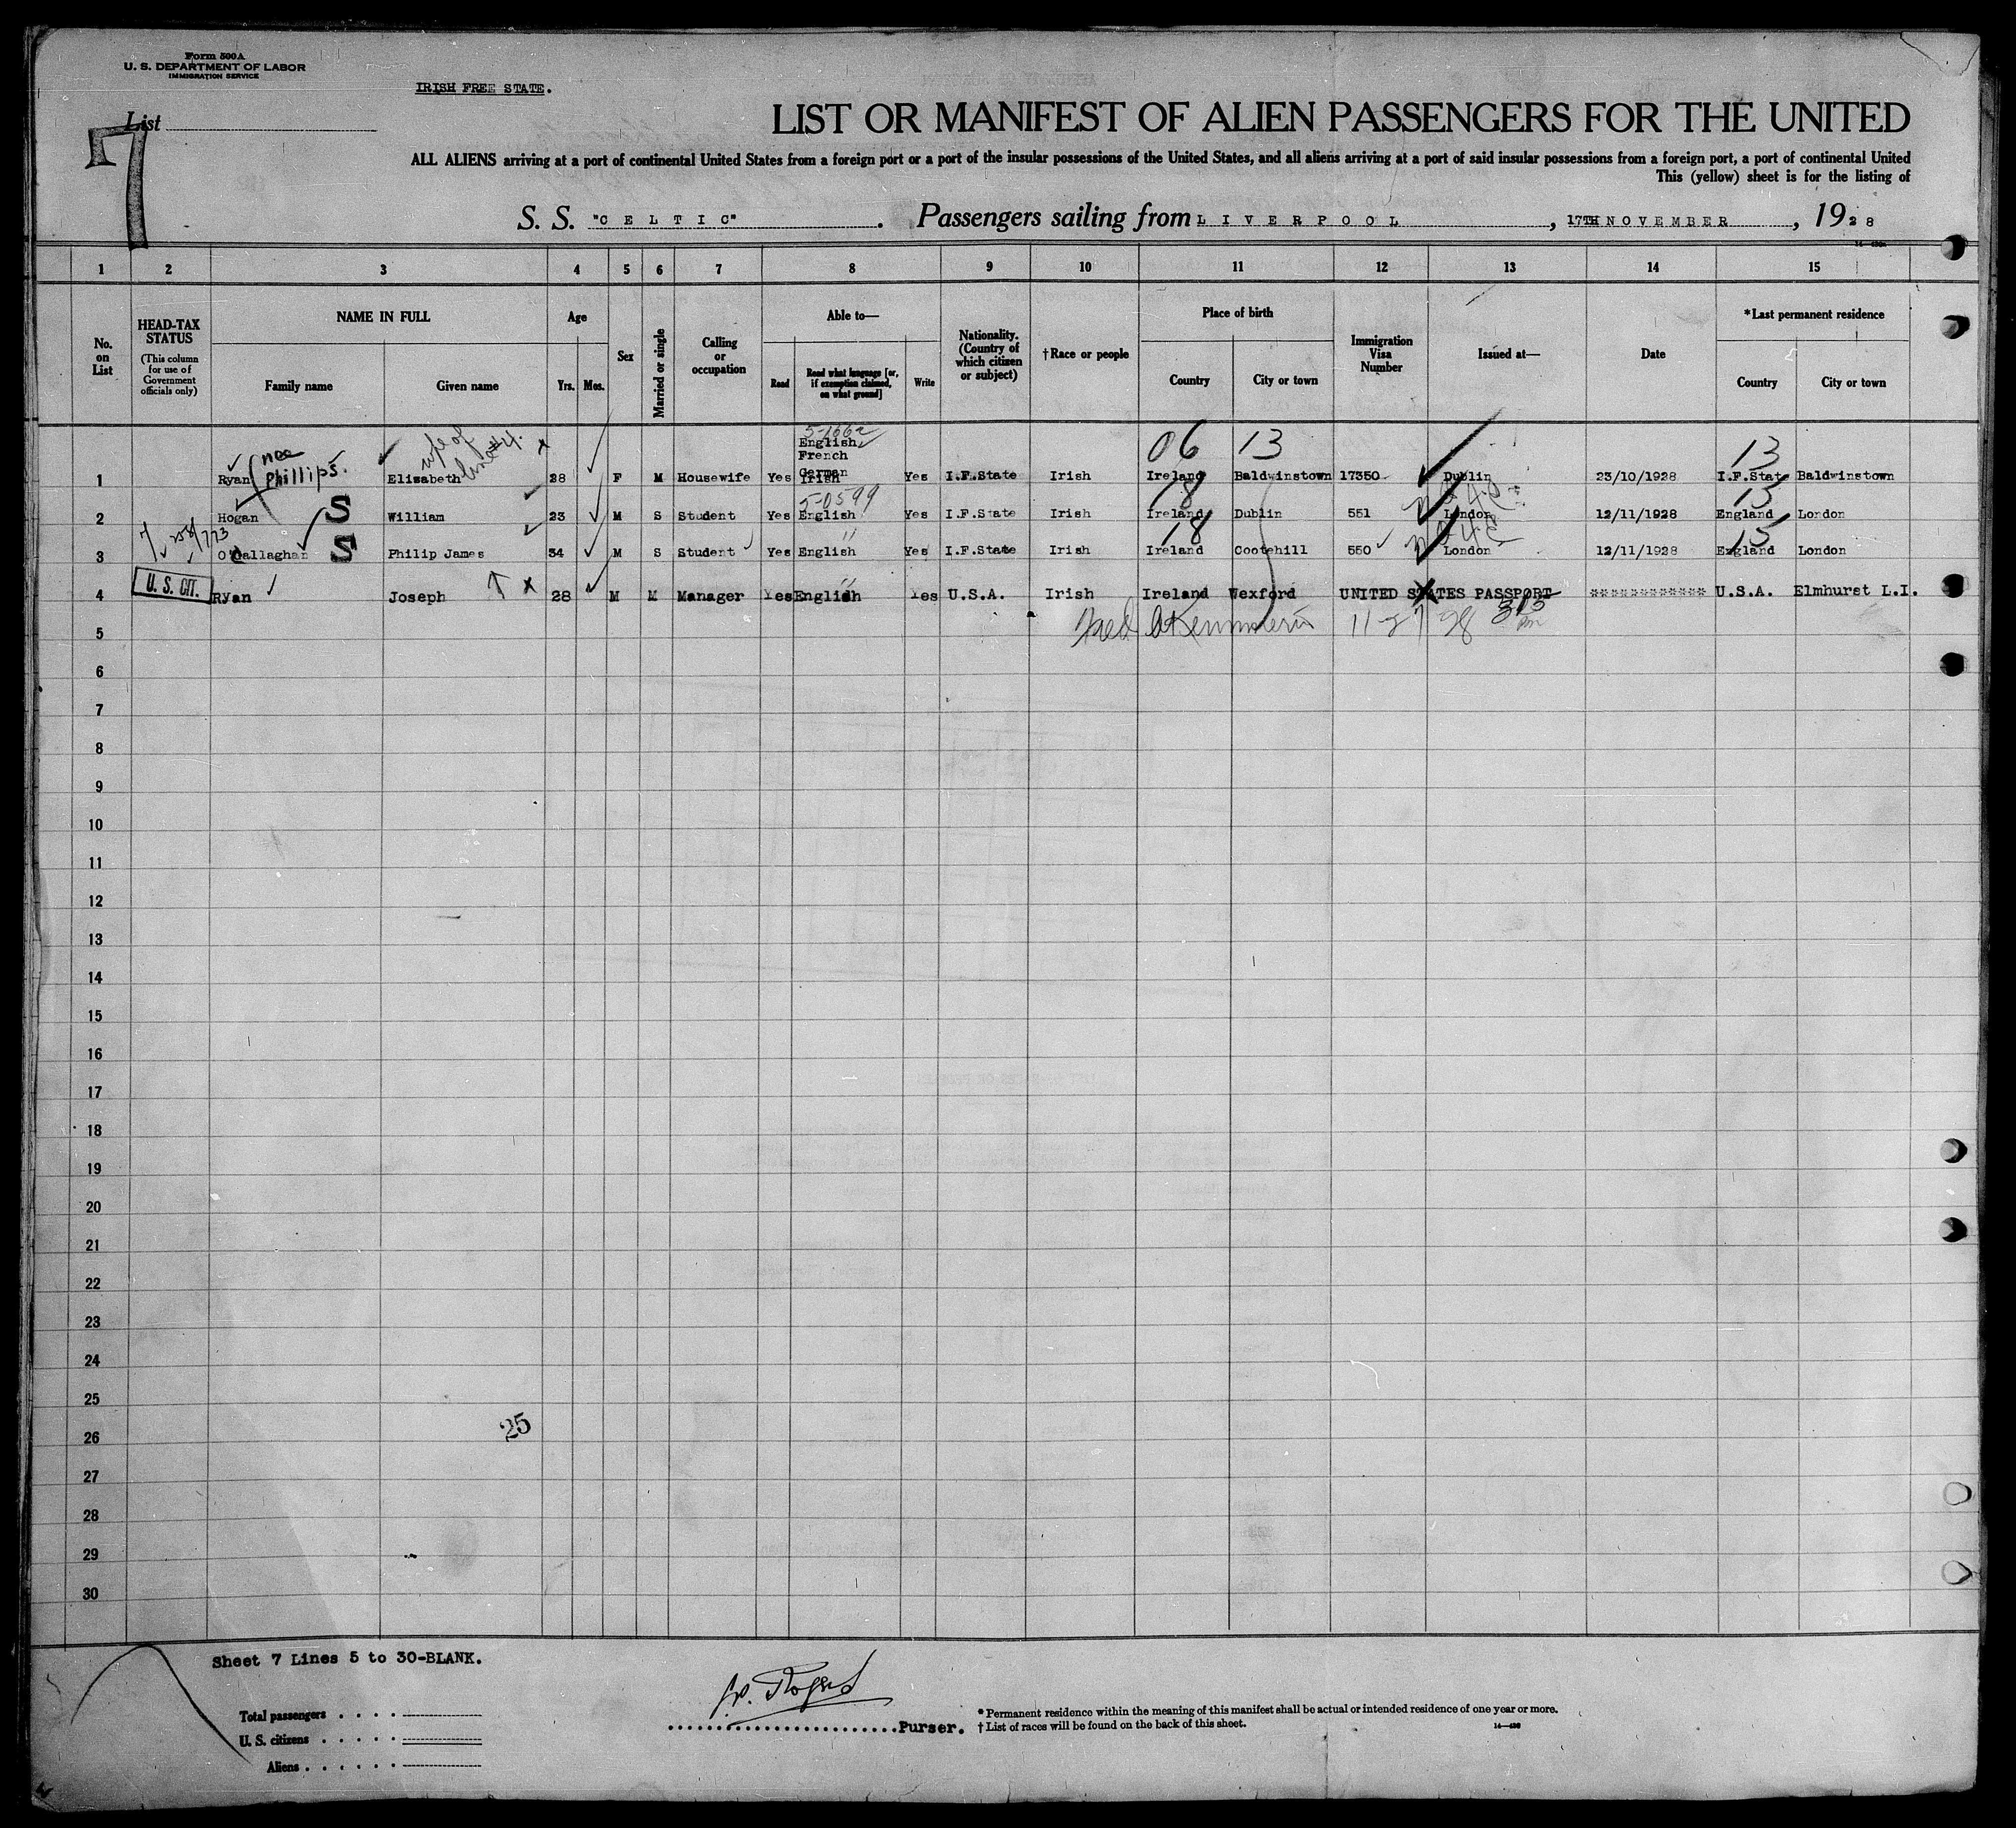 Form 500A
U. S. DEPARTMENT OF LABOR
IMMIGRATION SERVICE
IRISH FREE STATE.
List
7
LIST OR MANIFEST OF ALIEN PASSENGERS FOR THE UNITED
ALL ALIENS arriving at a port of continental United States from a foreign port or a port of the insular possessions of the United States, and all aliens arriving at a port of said insular possessions from a foreign port, a port of continental United
This (yellow) sheet is for the listing of
S. S. "CELTIC". Passengers sailing from LIVERPOOL, 17TH NOVEMBER, 1928
1 2 3 4 5 6 7 8 9 10 11 12 13 14 15
No. on List
HEAD-TAX STATUS
(This column for use of Government officials only)
NAME IN FULL
Family name
Given name
Age
Yrs. Mos.
Sex
Married or single
Calling or occupation
Able to—
Read
Read what language [or, if exemption claimed, on what ground]
Write
Nationality. (Country of which citizen or subject)
†Race or people
Place of birth
Country
City or town
Immigration Visa Number
Issued at—
Date
*Last permanent residence
Country
City or town
wife of line #4. 5-1662 06 13 13
1 Ryan (nee Phillips. Elizabeth 28 F M Housewife Yes English French German Irish Yes I.F.State Irish Ireland Baldwinstown 17350 Dublin 23/10/1928 I.F.State Baldwinstown
5-0599 18 15
2 Hogan S William 23 M S Student Yes English Yes I.F.State Irish Ireland Dublin 551 London 12/11/1928 England London
18 15
3 O'Callaghan S Philip James 34 M S Student Yes English " Yes I.F.State Irish Ireland Cootehill 550 London 12/11/1928 England London
4 U.S. CIT. Ryan Joseph x 28 M M Manager Yes English " Yes U.S.A. Irish Ireland Wexford UNITED STATES PASSPORT ************ U.S.A. Elmhurst L.I.
5 11-27 28 315 pm
6
7
8
9
10
11
12
13
14
15
16
17
18
19
20
21
22
23
24
25
25
26
27
28
29
30
Sheet 7 Lines 5 to 30-BLANK.
Total passengers
U. S. citizens
Aliens
Purser.
* Permanent residence within the meaning of this manifest shall be actual or intended residence of one year or more.
† List of races will be found on the back of this sheet.